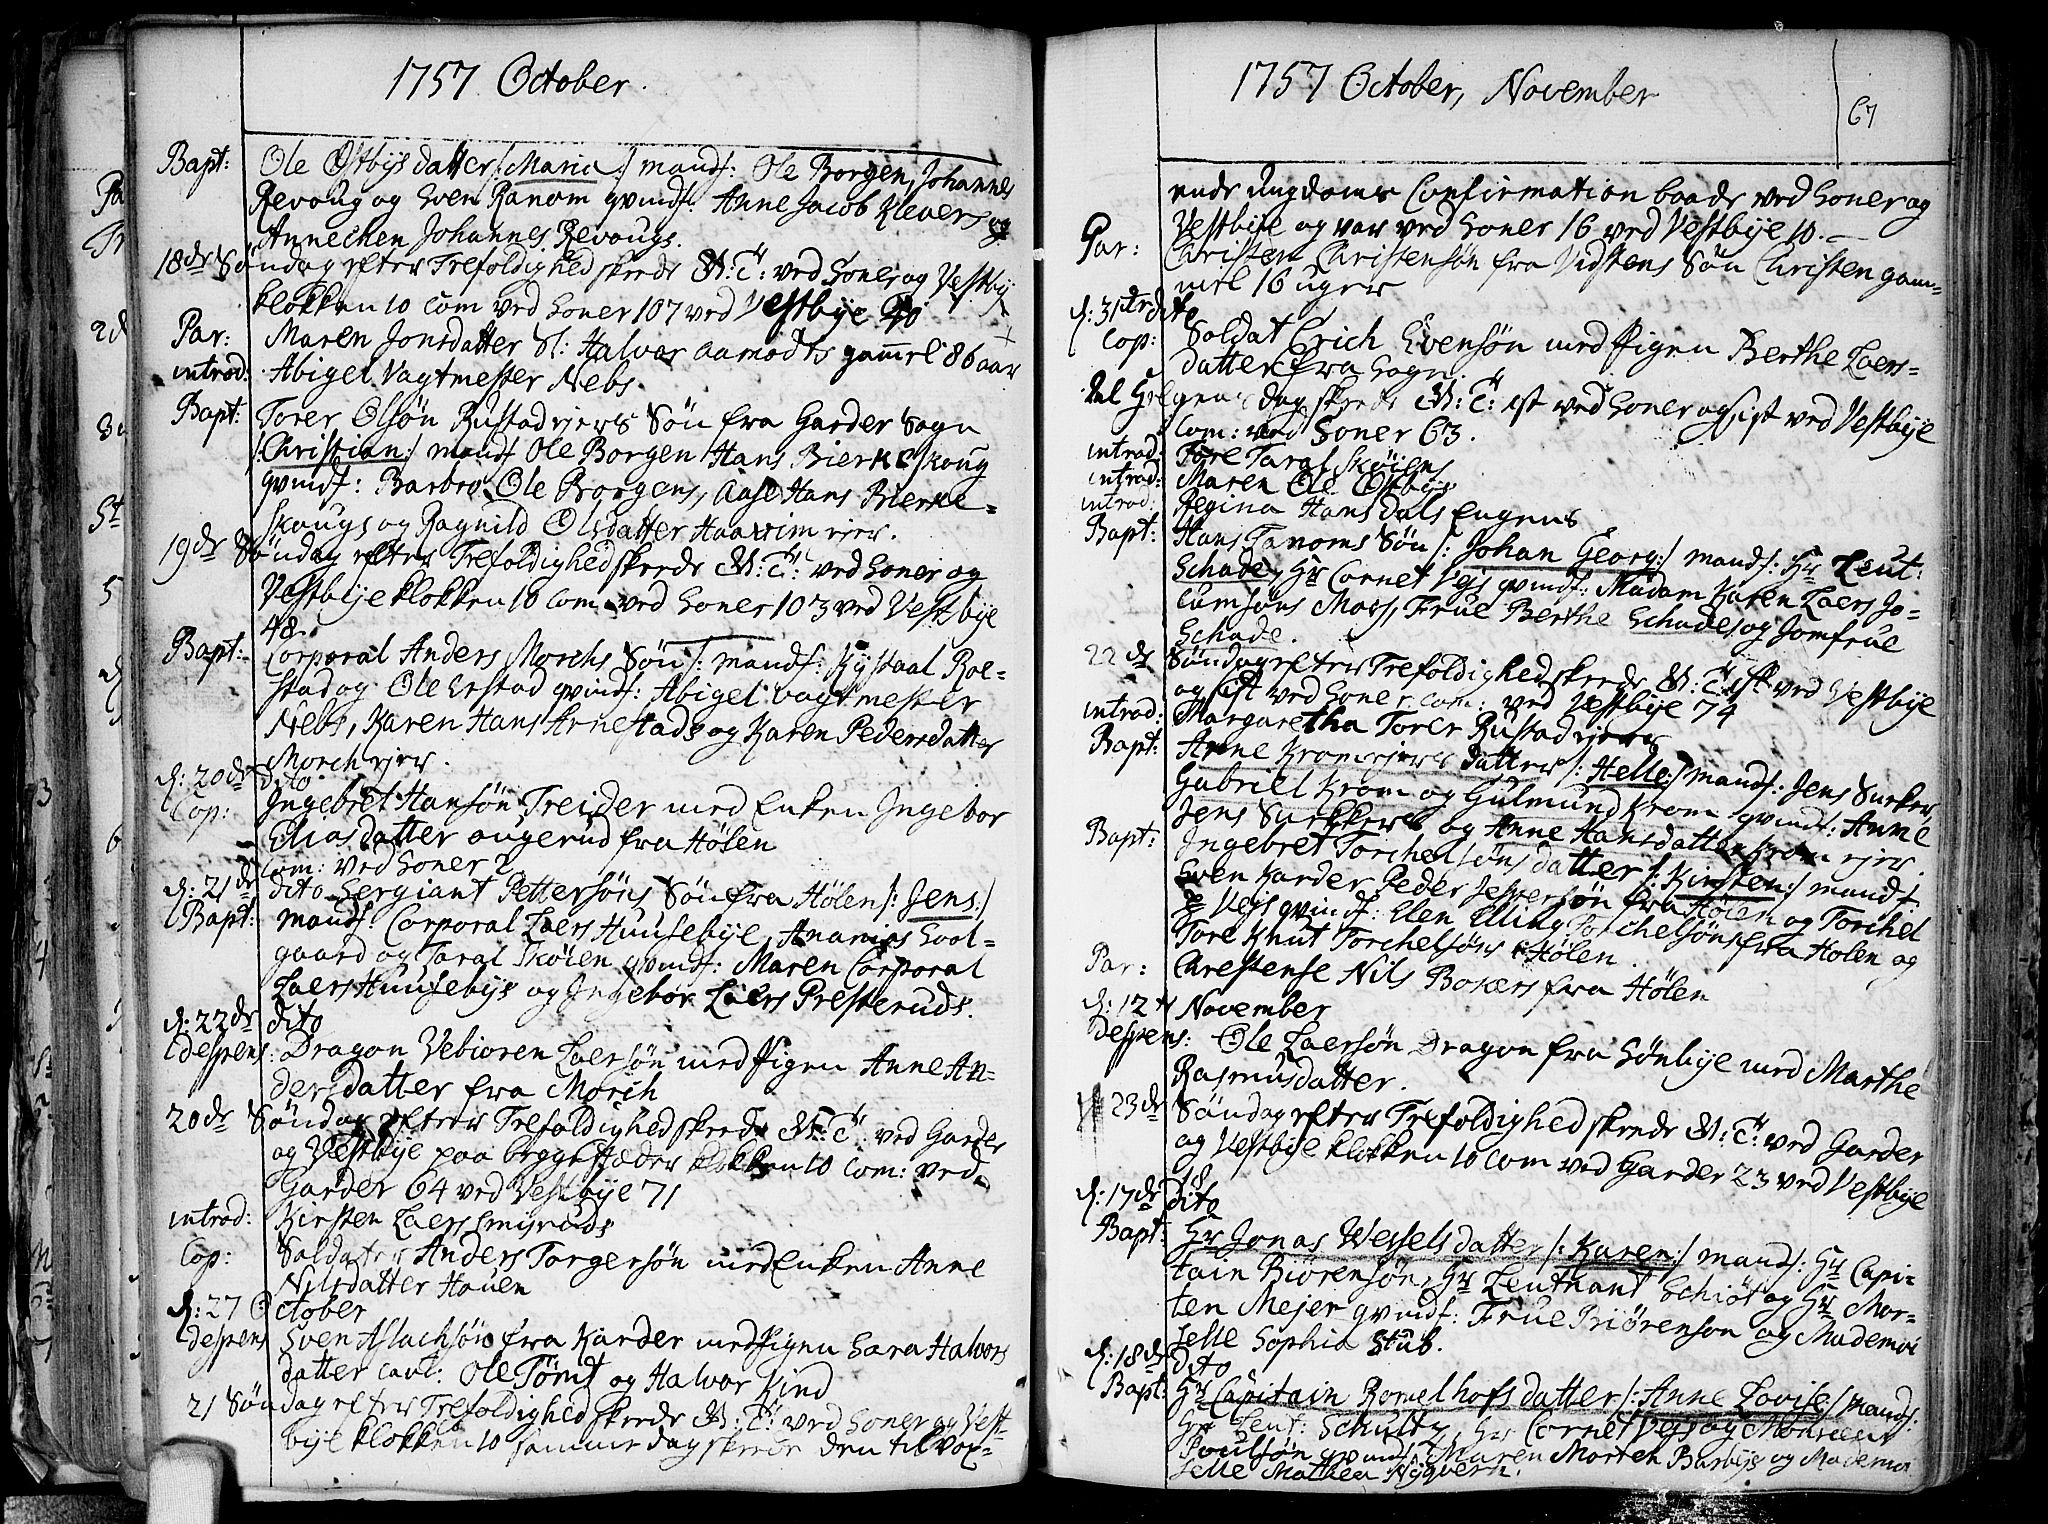 1757 October.
Bapt: Ole Østbijs datter /: Maria :/ mandf: Ole Borgen, Johannes
Revoug og Sven Ranom qvindf: Anne Jacob Klevers og
Annechen Johannes Revougs.
18de Søndag efter Trefoldighed skeede G: T: ved Soner og Vestbij
klokken 10 Com ved Soner 107 ved Vestbije
Par: Maren Jonsdatter Sl: Halvor Aamodts gammel 86 aar
introd: Abigel Vagtmester Nebs.
Bapt: Torer Olsøn Rustadejers Søn fra Garder Sogn
/: Christian :/ mandf Ole Borgen Hans Bierkeskoug
qvindf: Barbro Ole Borgens, Aase Hans Bierke-
skougs og Ragnild Olsdatter Haavim ejer.
19de Søndag efter Trefoldighed skeede G: T: ved Soner og
Vestbije klokken 10 Com ved Soner 103 ved Vestbije
48.
Bapt: Corporal Anders Morchs Søn /: mandf: Kystaal Roe-
stad og Ole Erstad qvindf: Abigel vagtmester
Nebs, Karen Hans Arnestads og Karen Pedersdatter
Morch ejer.
d: 20de dito
Cop: Ingebret Hansøn Treider med Enken Ingebor
Eliasdatter ougerud fra Hølen
Com: ved Soner 2
d: 21de dito Sergiant Pettersøns Søn fra Hølen /: Jens :/
Bapt: mandf: Corporal Laers Huusebije, Ananias Sool-
gaard og Taral Skøien qvindf: Maren Corporal
Laers Huusebijs og Ingebor Laers Presteruds.
d: 22de dito
despens: Dragon Vebioren Laersøn med Pigen Anne An-
dersdatter fra Morch
20de Søndag efter Trefoldighed skeede G: T: ved Garder
og Vestbije paa begge stæder klokken 10 Com: ved
Garder 64 ved Vestbije 71
introd: Kirsten Laers Smijruds
Cop: Soldater Anders Torgersøn med Enken Anne
Nilsdatter Hauen
d: 27 October
despens Sven Aslachsøn fra Karder med Pigen Sara Halvors
datter caut: Ole Tømt og Halvor Kind
21 Søndag efter Trefoldighed skeede G: T: ved Soner og Vest-
bije klokken 10 samme dag skeede den til vox-
1757 October, November
67
ende Ungdoms Confirmation baade ved Soner og
Vestbije og var ved Soner 16 ved Vestbije 10.
Par: Christen Christensøn fra Vidstens Søn Christen gam-
mel 16 uger
d: 31te dito
Cop: Soldat Erich Evensøn med Pigen Berthe Laers-
datter fra Sogn.
Al Helgens dag skeede G: T: 1st ved Soner og sist ved Vestbije
Com: ved Soner 63.
introd: Tore Taral Skøiens
introd: Maren Ole Østbijs
introd: Regina Hans dals Engens
Bapt: Hans Tanoms Søn /: Johan Georg :/ mandf: Hr Leut:
Schade, Hr Cornet Vejs qvindf: Madam Karen Laers Jo-
cumsøns Moss, Frue Berthe Schades og Jomfrue
Schade.
22de Søndag efter Trefoldighed skeede G: T. 1st ved Vestbije
og sist ved Soner com: ved Vestbije 74
introd: Margaretha Torer Rustadejers
Bapt: Arne Kromejers datter /: Helle :/ mandf: Jens Surker,
Gabriel Krom og Gulmund Krom qvindf: Anne
Jens Surkkers og Anne Hansdatter Krom ejer.
Bapt: Ingebret Torchelsøns datter /: Kirsten :/ mandf:
Sven Karder Peder Jespersøn fra Hølen og Torchel
Vejs qvindf: Elen Elling Torchelsøns fra Hølen og
Tore Knut Torchelsøns Hølen.
Par: Chrestense Nils Bokers fra Hølen
d: 12te November
despens: Ole Laersøn Dragon fra Sønbije med Marthe
Rasmusdatter.
23de Søndag efter Trefoldighed skeede G: T: ved Garder
og Vestbije klokken 10 Com ved Garder 23 ved Vestbije
18
d: 17de dito
Bapt: Hr Jonas Wessels datter /: Karen :/ mandf: Hr Capi-
tain Biørensøn, Hr Leutnant Schiøt og Hr Mor-
ten Mejer qvindf: Frue Biørenson og Mademoi
selle Sophia Stub.
d: 18de dito
Bapt: Hr Capitain Romelhofs datter /: Anne Lovise :/ mandf:
Hr Leut: Schultz, Hr Cornet Vejs og Monsieur
Poulsøn qvindf: Maren Morten Barbijs og Mademoi
selle Mathea Nijqvern.